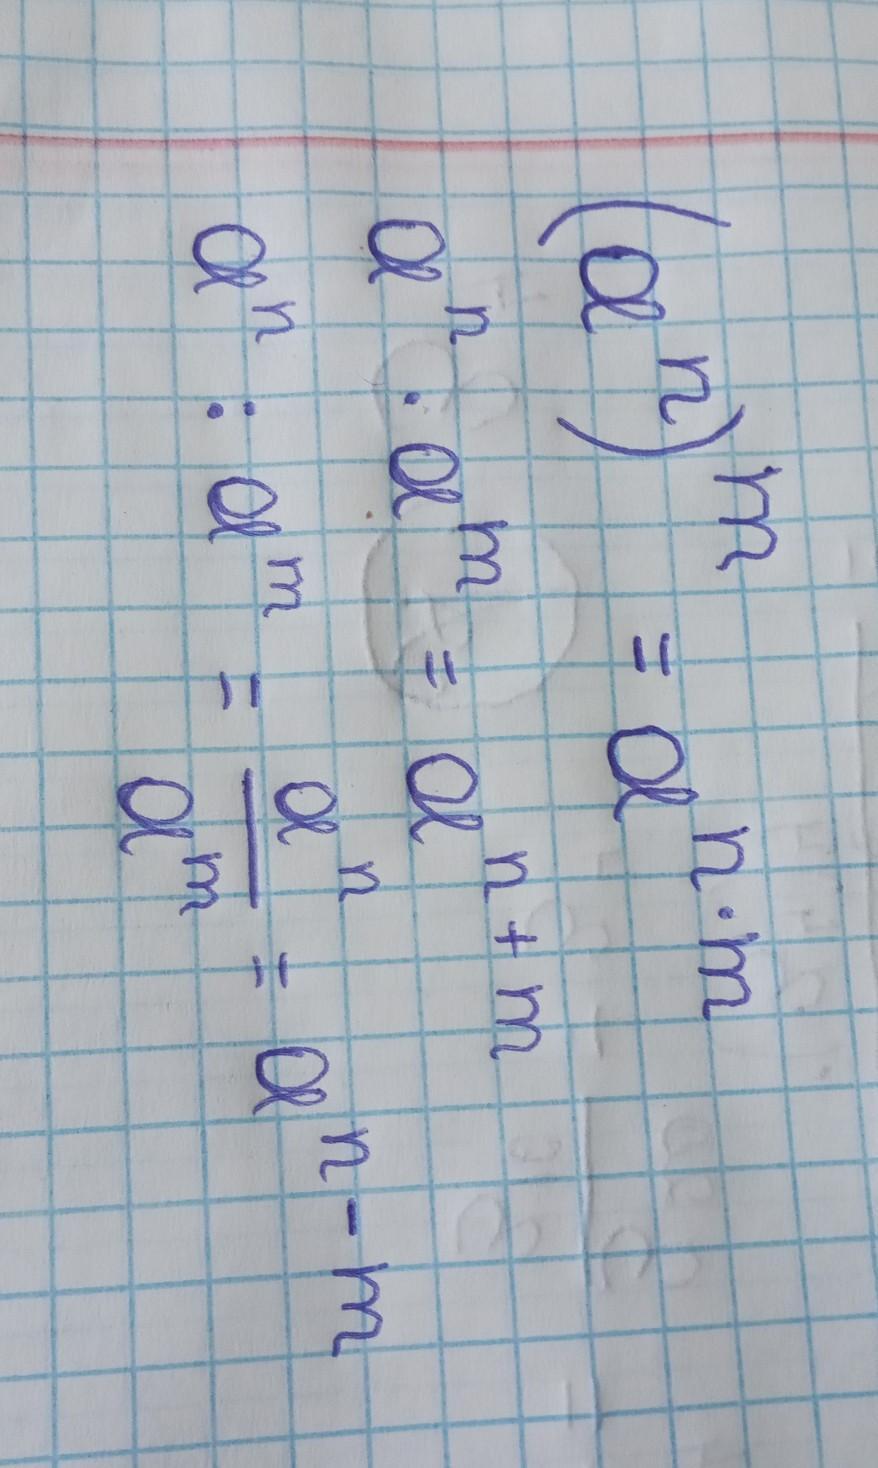 (aⁿ)ᵐ = aⁿ·ᵐ
aⁿ · aᵐ = aⁿ⁺ᵐ
aⁿ : aᵐ = aⁿ/aᵐ = aⁿ⁻ᵐ